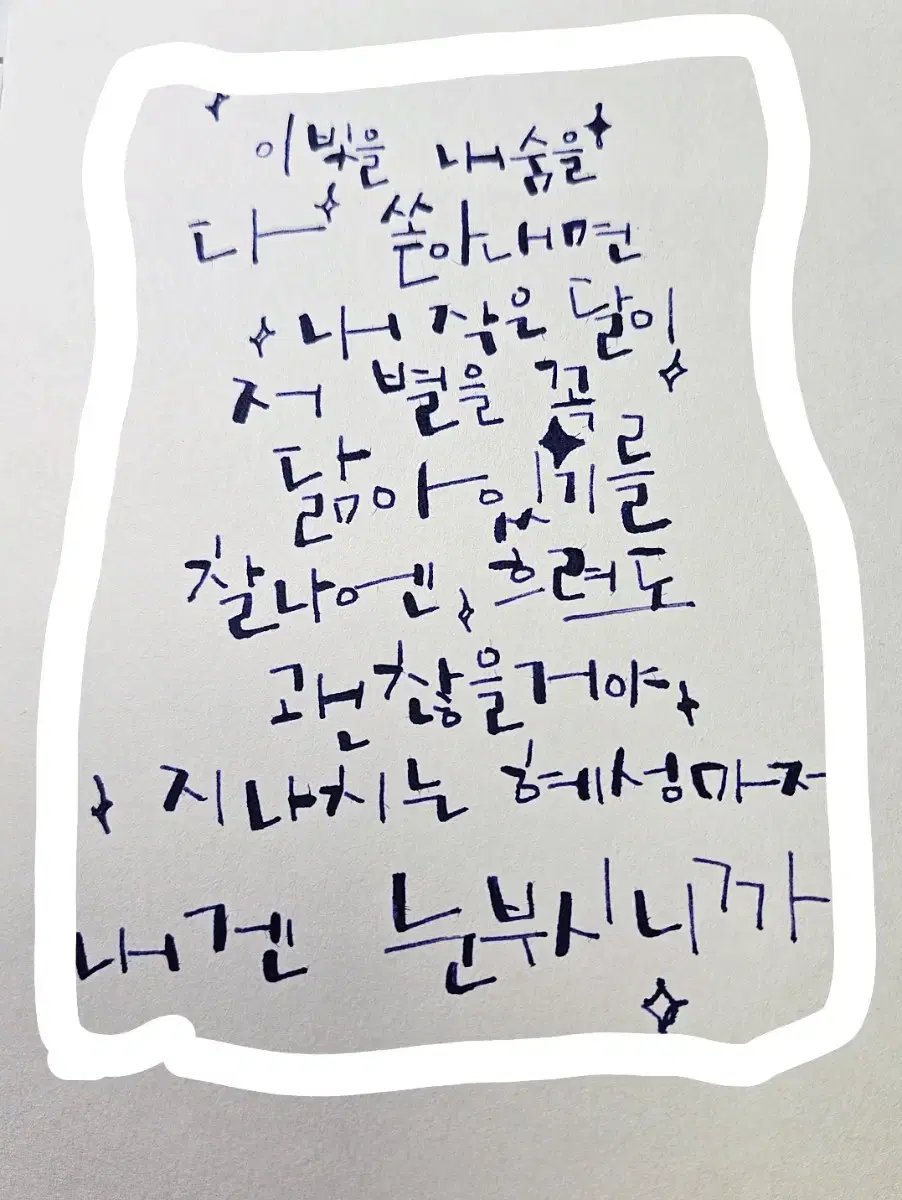 이 빛을 내 숨을
다 쏟아내면
내 작은 달이
저 별을 꼭
닮아있기를
찰나엔 흐려도
괜찮을거야
지나치는 혜성마저
내겐 눈부시니까